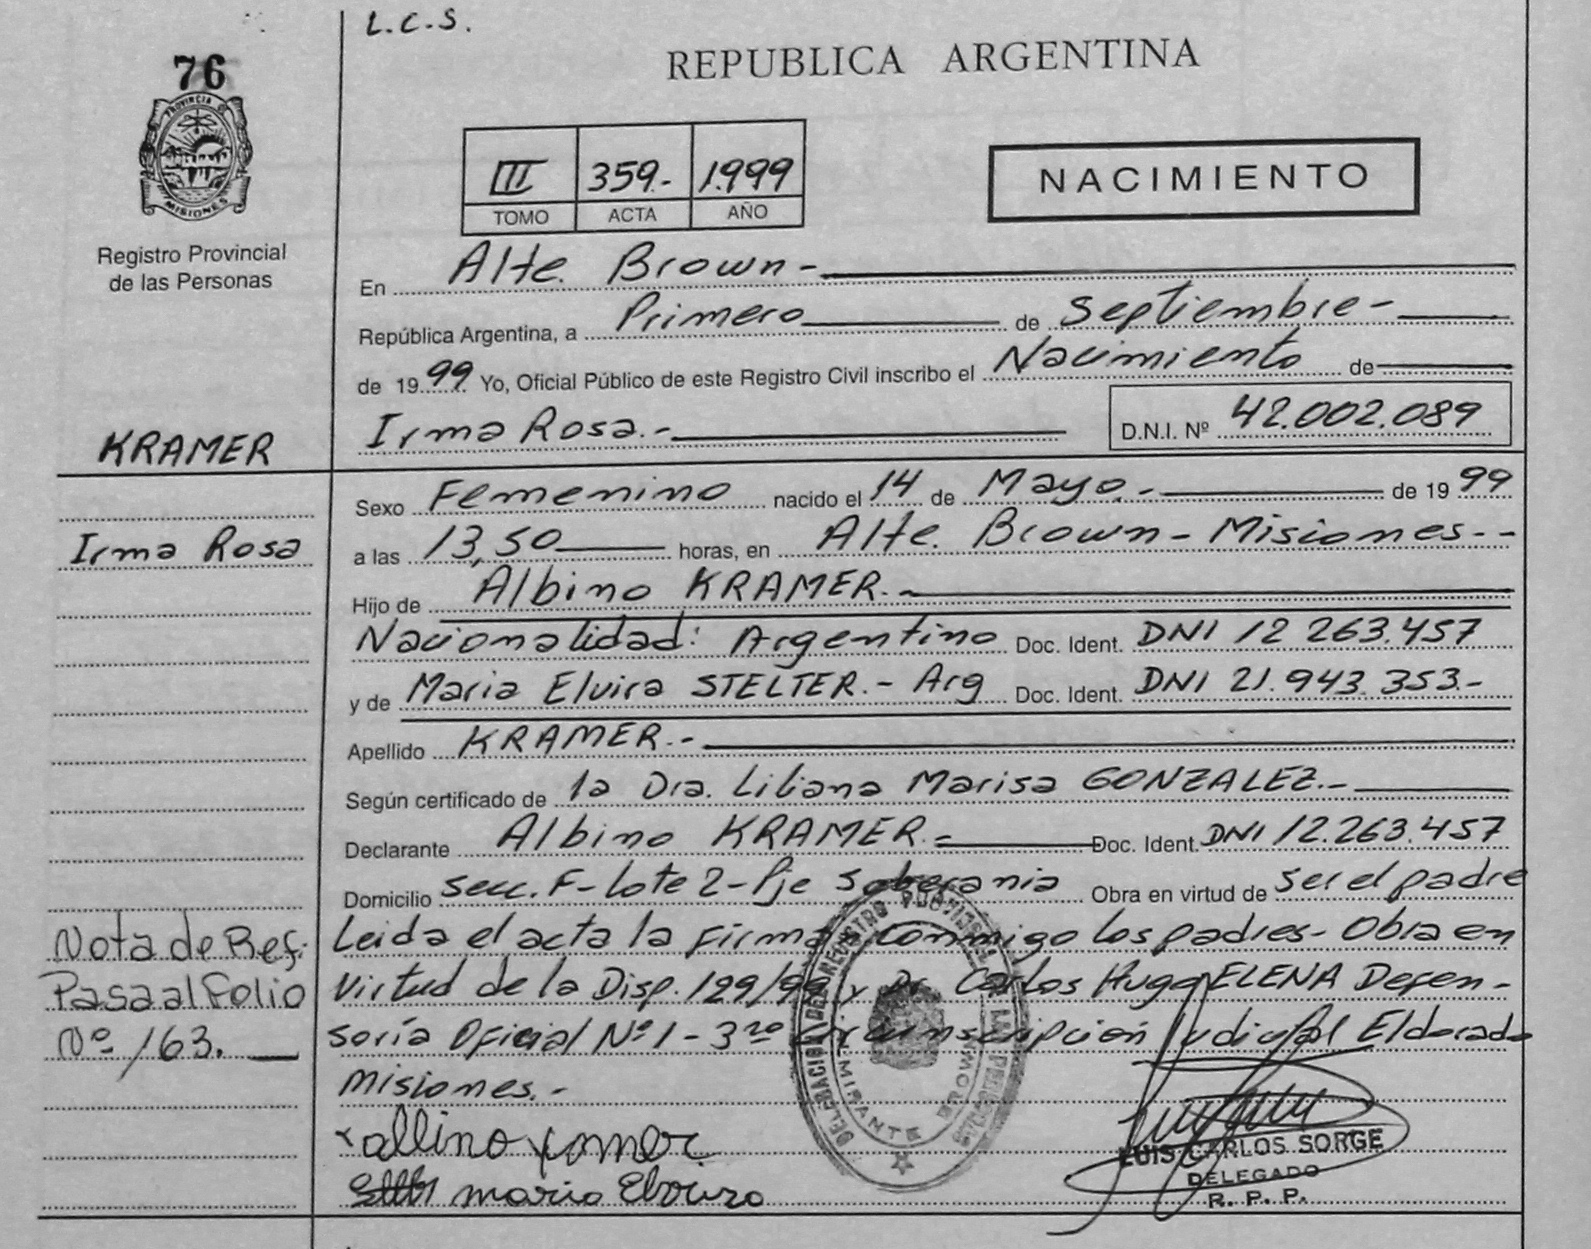 L.C.S.
76
REPUBLICA ARGENTINA
PROVINCIA DE
MISIONES
III 359.- 1.999
TOMO ACTA AÑO
NACIMIENTO
Registro Provincial
de las Personas
En Alte. Brown -
República Argentina, a Primero de Septiembre -
de 19 99 Yo, Oficial Público de este Registro Civil inscribo el Nacimiento de
Irma Rosa.- D.N.I. Nº 42.002.089
KRAMER
Irma Rosa
Sexo Femenino nacido el 14 de Mayo.- de 19 99
a las 13,50 horas, en Alte. Brown - Misiones--
Hijo de Albino KRAMER.-
Nacionalidad: Argentino Doc. Ident. DNI 12 263.457
y de Maria Elvira STELTER.- Arg Doc. Ident. DNI 21.943.353.-
Apellido KRAMER.-
Según certificado de la Dra. Liliana Marisa GONZALEZ.-
Declarante Albino KRAMER.= Doc. Ident. DNI 12.263.457
Domicilio Secc. F- Lote 2- Pje Soberania Obra en virtud de ser el padre
Leida el acta la firma conmigo los padres- Obra en
Virtud de la Disp. 129/99 y Dr. Carlos Hugo ELENA Defen-
soría Oficial Nº 1 - 3ra Circunscripción Judicial Eldorado
Misiones.-
Nota de Ref.
Pasa al Folio
Nº 163.
DELEGACION DEL REGISTRO PROVINCIAL DE LAS PERSONAS
ALMIRANTE BROWN
x albino
maria
LUIS CARLOS SORGE
DELEGADO
R. P. P.